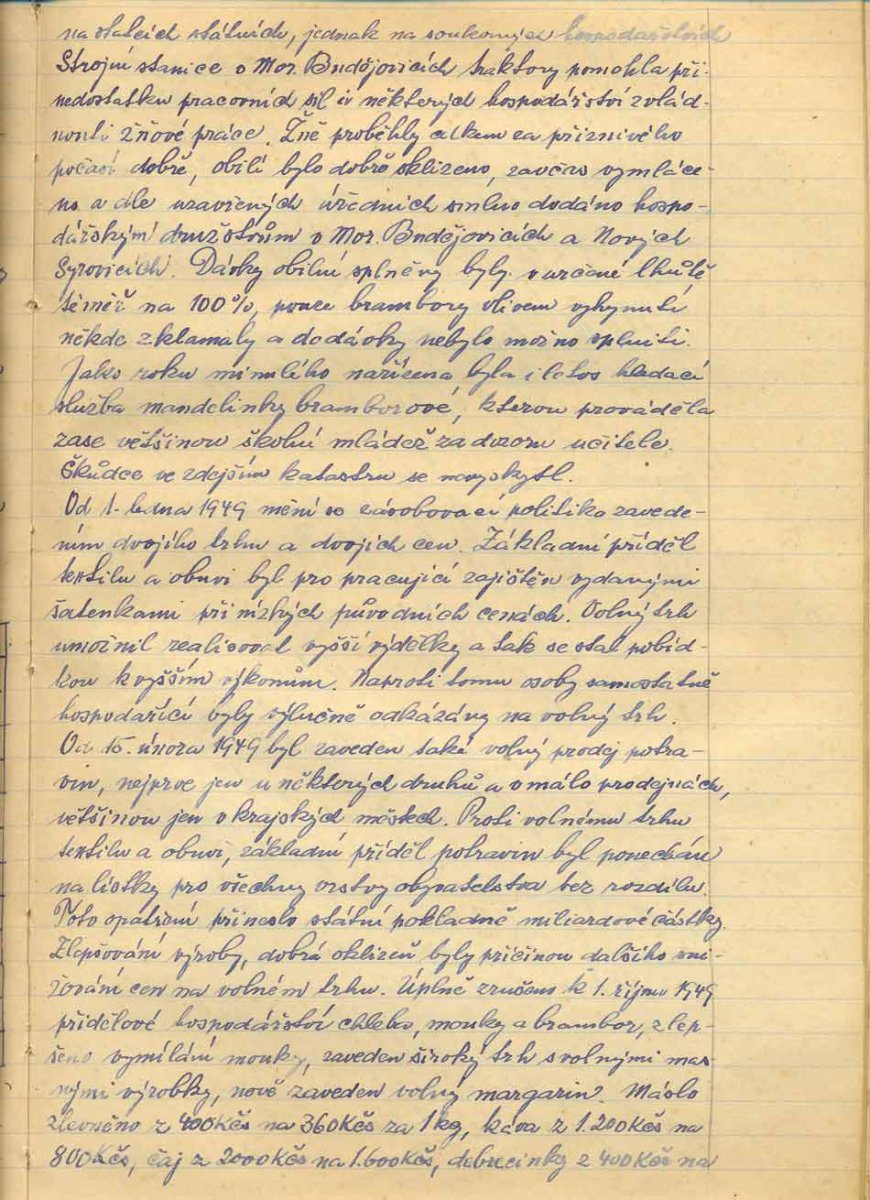 na statcích státních, jednak na soukromých hospodářstvích
Strojní stanice v Mor. Budějovicích traktory pomohla při
nedostatku pracovních sil i v některých hospodářství zvlád-
nouti žňové práce. Žně proběhly celkem za příznivého
počasí dobře, obilí bylo dobře sklizeno, zavčas vymláce-
no a dle uzavřených úředních smluv dodáno hospo-
dářským družstvům v Mor. Budějovicích a Nových
Syrovicích. Dávky obilní splněny byly v určené lhůtě
téměř na 100%, pouze brambory vlivem vyhynutí
někde zklamaly a dodávky nebylo možno splniti.
Jako roku minulého nařízena byla i letos hledací
služba mandelinky bramborové, kterou prováděla
zase většinou školní mládež za dozoru učitele.
Škůdce ve zdejším katastru se nevyskytl.
Od 1. ledna 1949 mění se zásobovací politika zavede-
ním dvojího trhu a dvojích cen. Základní příděl
textilu a obuvi byl pro pracující zajištěn vydanými
šatenkami při nízkých původních cenách. Volný trh
umožnil realisovat vyšší výdělky a tak se stal pobíd-
kou k vyšším výkonům. Naproti tomu osoby samostatně
hospodařící byly výlučně odkázány na volný trh.
Od 15. února 1949 byl zaveden také volný prodej potra-
vin, nejprve jen u některých druhů a v málo prodejnách,
většinou jen v krajských městech. Proti volnému trhu
textilu a obuvi, základní příděl potravin byl ponechán
na lístky pro všechny vrstvy obyvatelstva bez rozdílu.
Toto opatření přineslo státní pokladně miliardové částky.
Zlepšování výroby, dobrá sklizeň byly příčinou dalšího sni-
žování cen na volném trhu. Úplně zrušeno k 1. říjnu 1949
přídělové hospodářství chleba, mouky a brambor, zlep-
šeno vymílání mouky, zaveden široký trh s volnými mas-
nými výrobky, nově zaveden volný margarin. Máslo
zlevněno z 400Kčs na 360Kčs za 1 kg, káva z 1.200Kčs na
800Kčs, čaj z 2000Kčs na 1.600Kčs, debrecinky z 400Kčs na